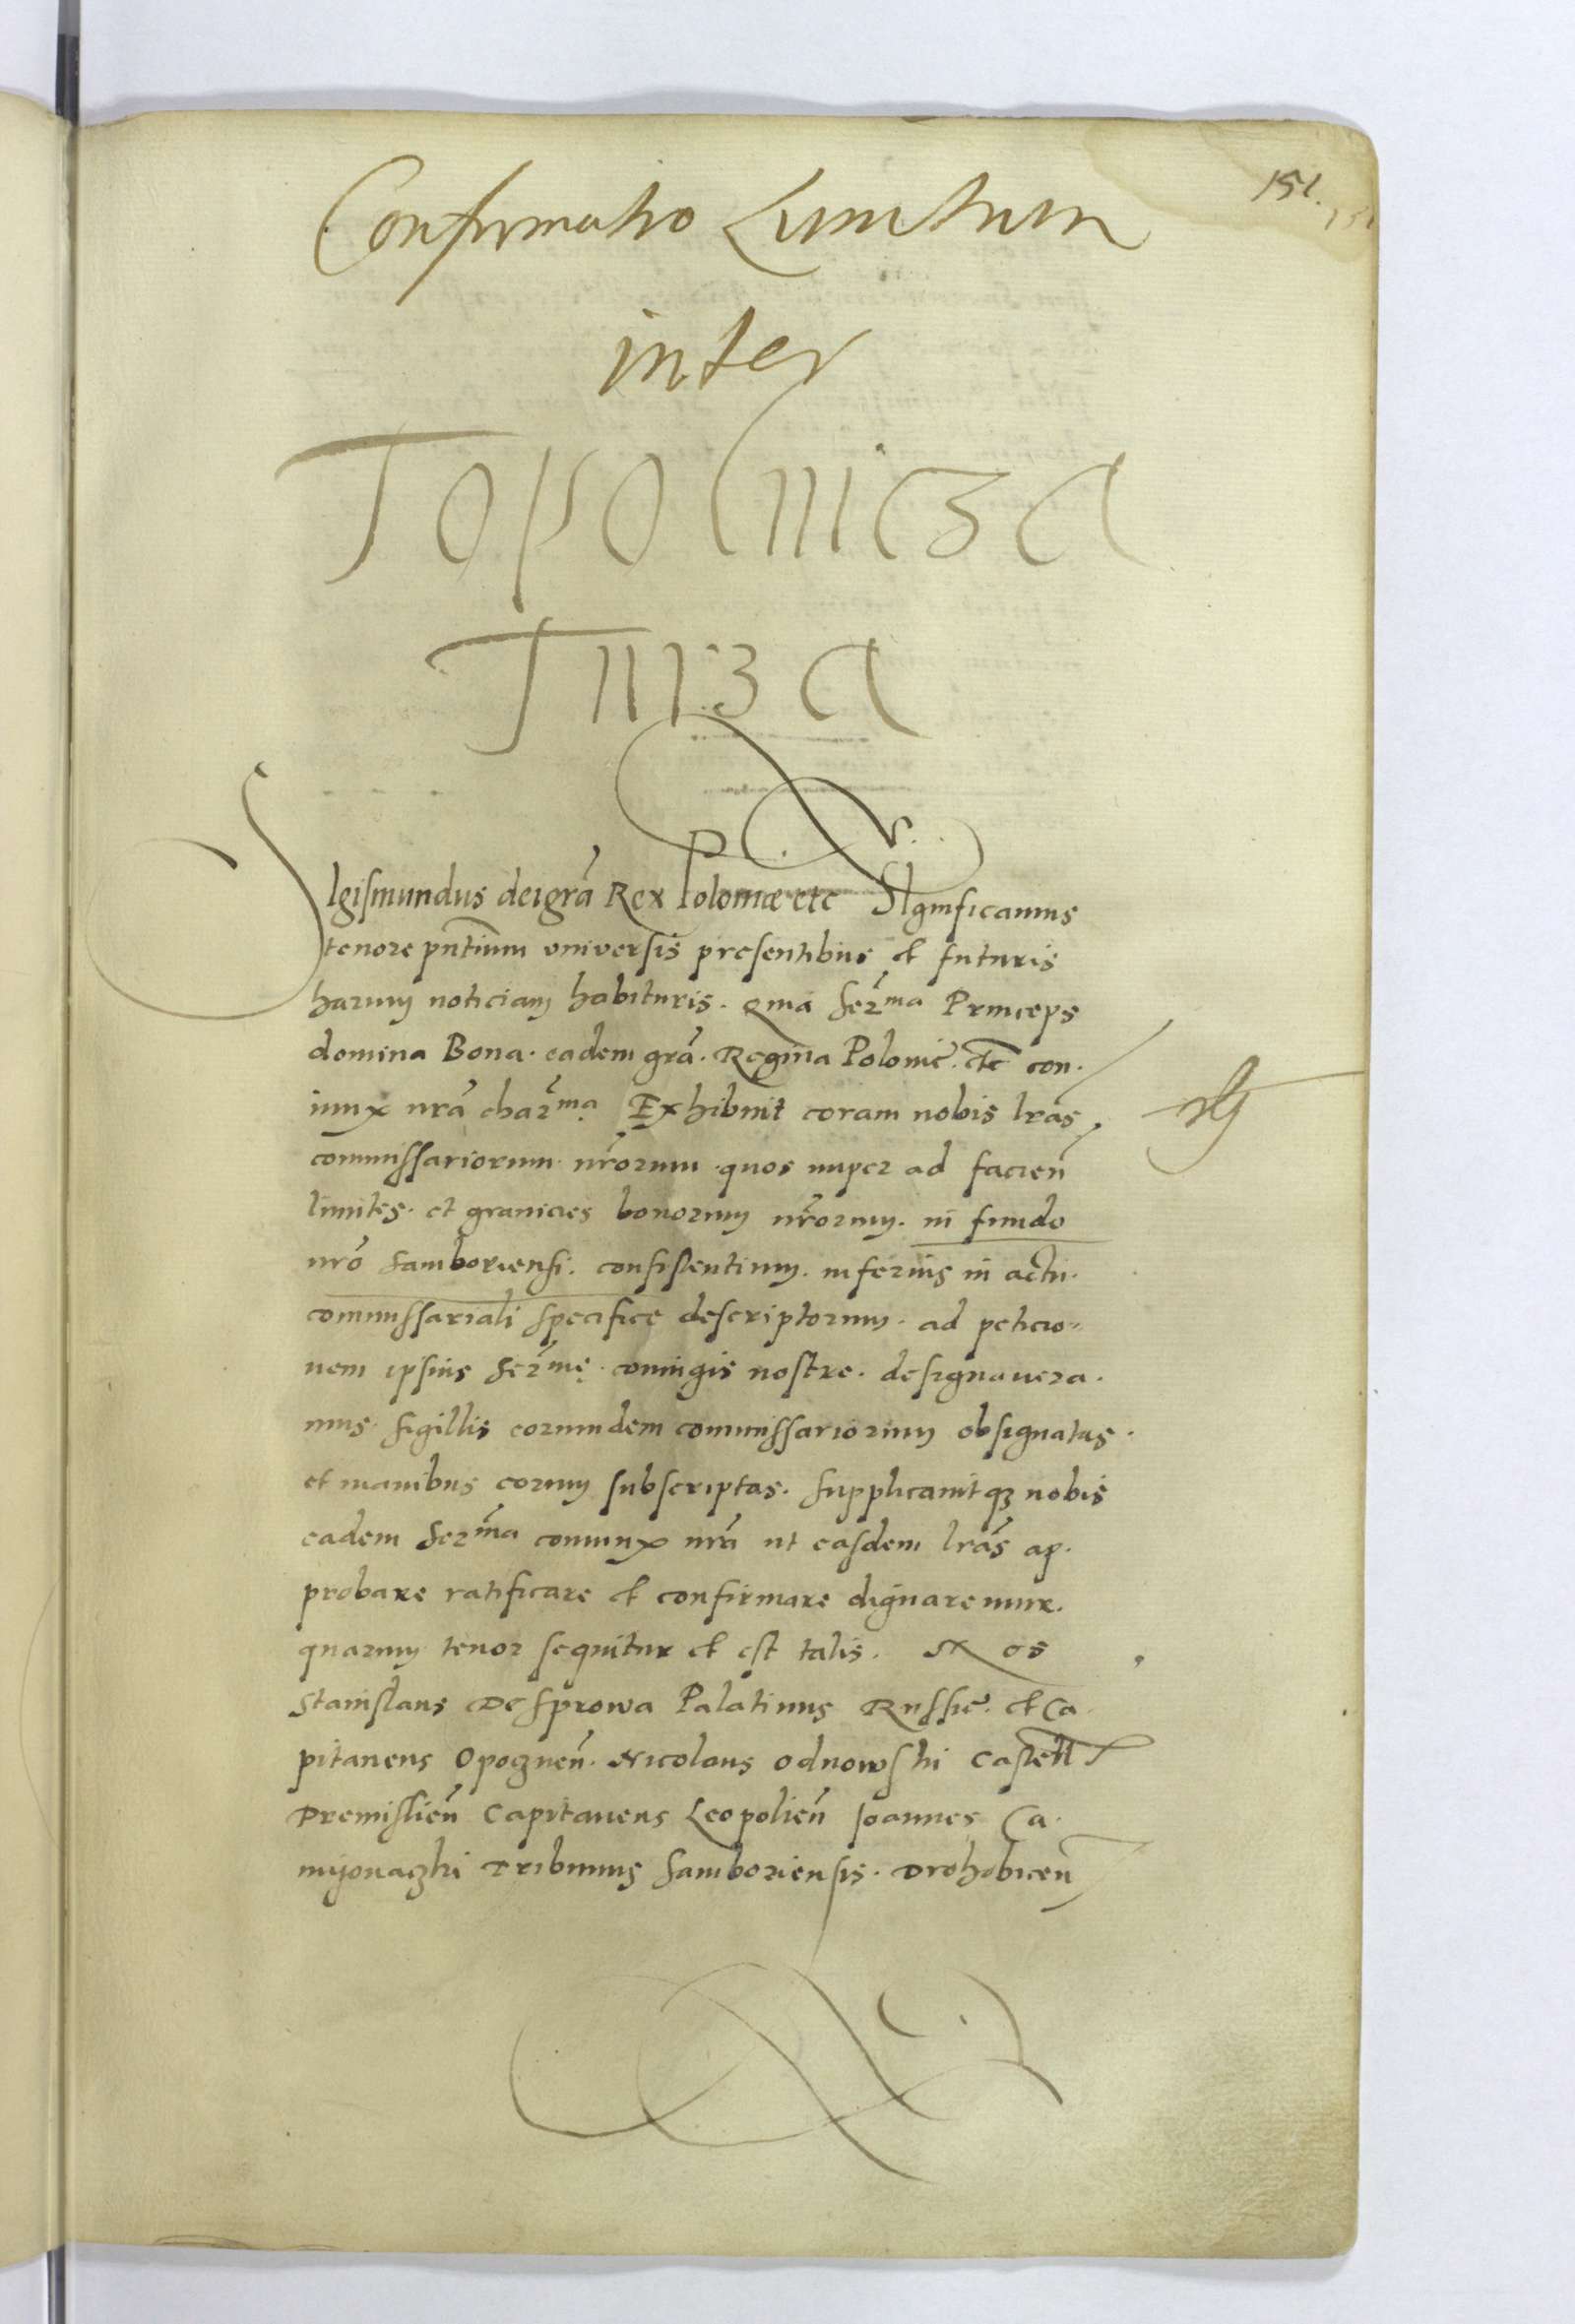 151.
Confirmatio Limitum
inter
Topolnicza
Turza
SIgismundus dei grã Rex Poloniæ etc SIgnificamus
tenore pñtium universis presentibus et futuris
harum noticiam habituris. Quia Serma Princeps
domina Bona. eadem grã. Regina Polonie. etc con.
iunx nrã charma Exhibuit coram nobis lrãs
commissariorum nrõrum quos nuper ad facieñ
limites. et granicies bonorum nrõrum. in fundo
nrõ Samboriensi. consistentium. inferius in actu.
commissariali specifice descriptorum. ad peticio=
nem ipsius Serme. coniugis nostre. designavera.
mus. sigillis eorundem commissariorum obsignatas.
et manibus eorum subscriptas. Supplicavitqꝫ nobis
eadem Serma coniunx nrã ut easdem lrãs ap.
probare ratificare et confirmare dignaremur.
quarum tenor sequitur et est talis. Nos
Stanislaus De Sprowa Palatinus Russie. et Ca.
pitaneus Opoczneñ. Nicolaus Odnowski Castell
Premislieñ Capitaneus Leopolieñ Joannes Ca.
myonaczki Tribunus Samboriensis. Drohobiceñ